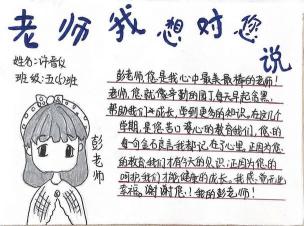 老师我想对您说
姓名:许
班级:五(4)班
彭老师
彭老师,您是我心中最亲最棒的老师!
老师,您就像辛勤的园丁,每天早起贪黑,
帮助我们成长,学到更多的知识,在这几个
学期,是您苦口婆心的教育我们,您的
每一句金石良言我都记在了心里,正因为您
的教会我们才有今天的见识;正因为您的
呵护我们才能健康的成长。我愿您永远
幸福。谢谢您!我的彭老师!